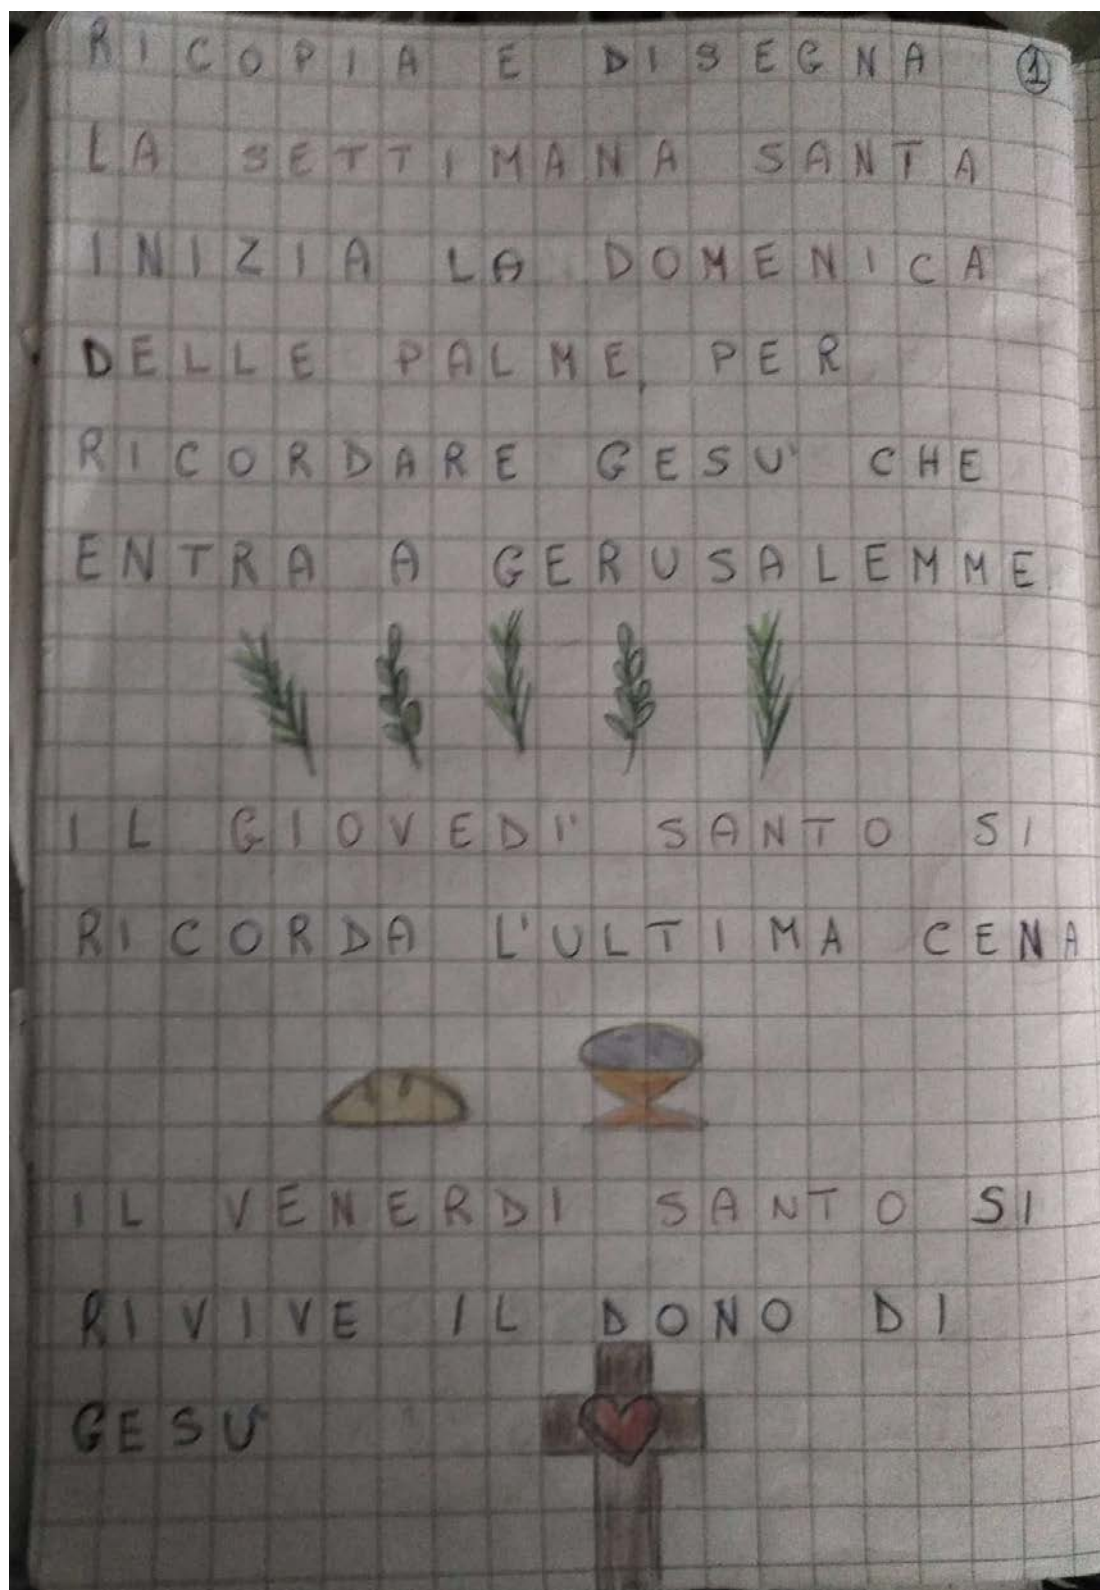 RICOPIA E DISEGNA 1
LA SETTIMANA SANTA
INIZIA LA DOMENICA
DELLE PALME, PER
RICORDARE GESU' CHE
ENTRA A GERUSALEMME.
IL GIOVEDI' SANTO SI
RICORDA L'ULTIMA CENA
IL VENERDI SANTO SI
RIVIVE IL DONO DI
GESU'